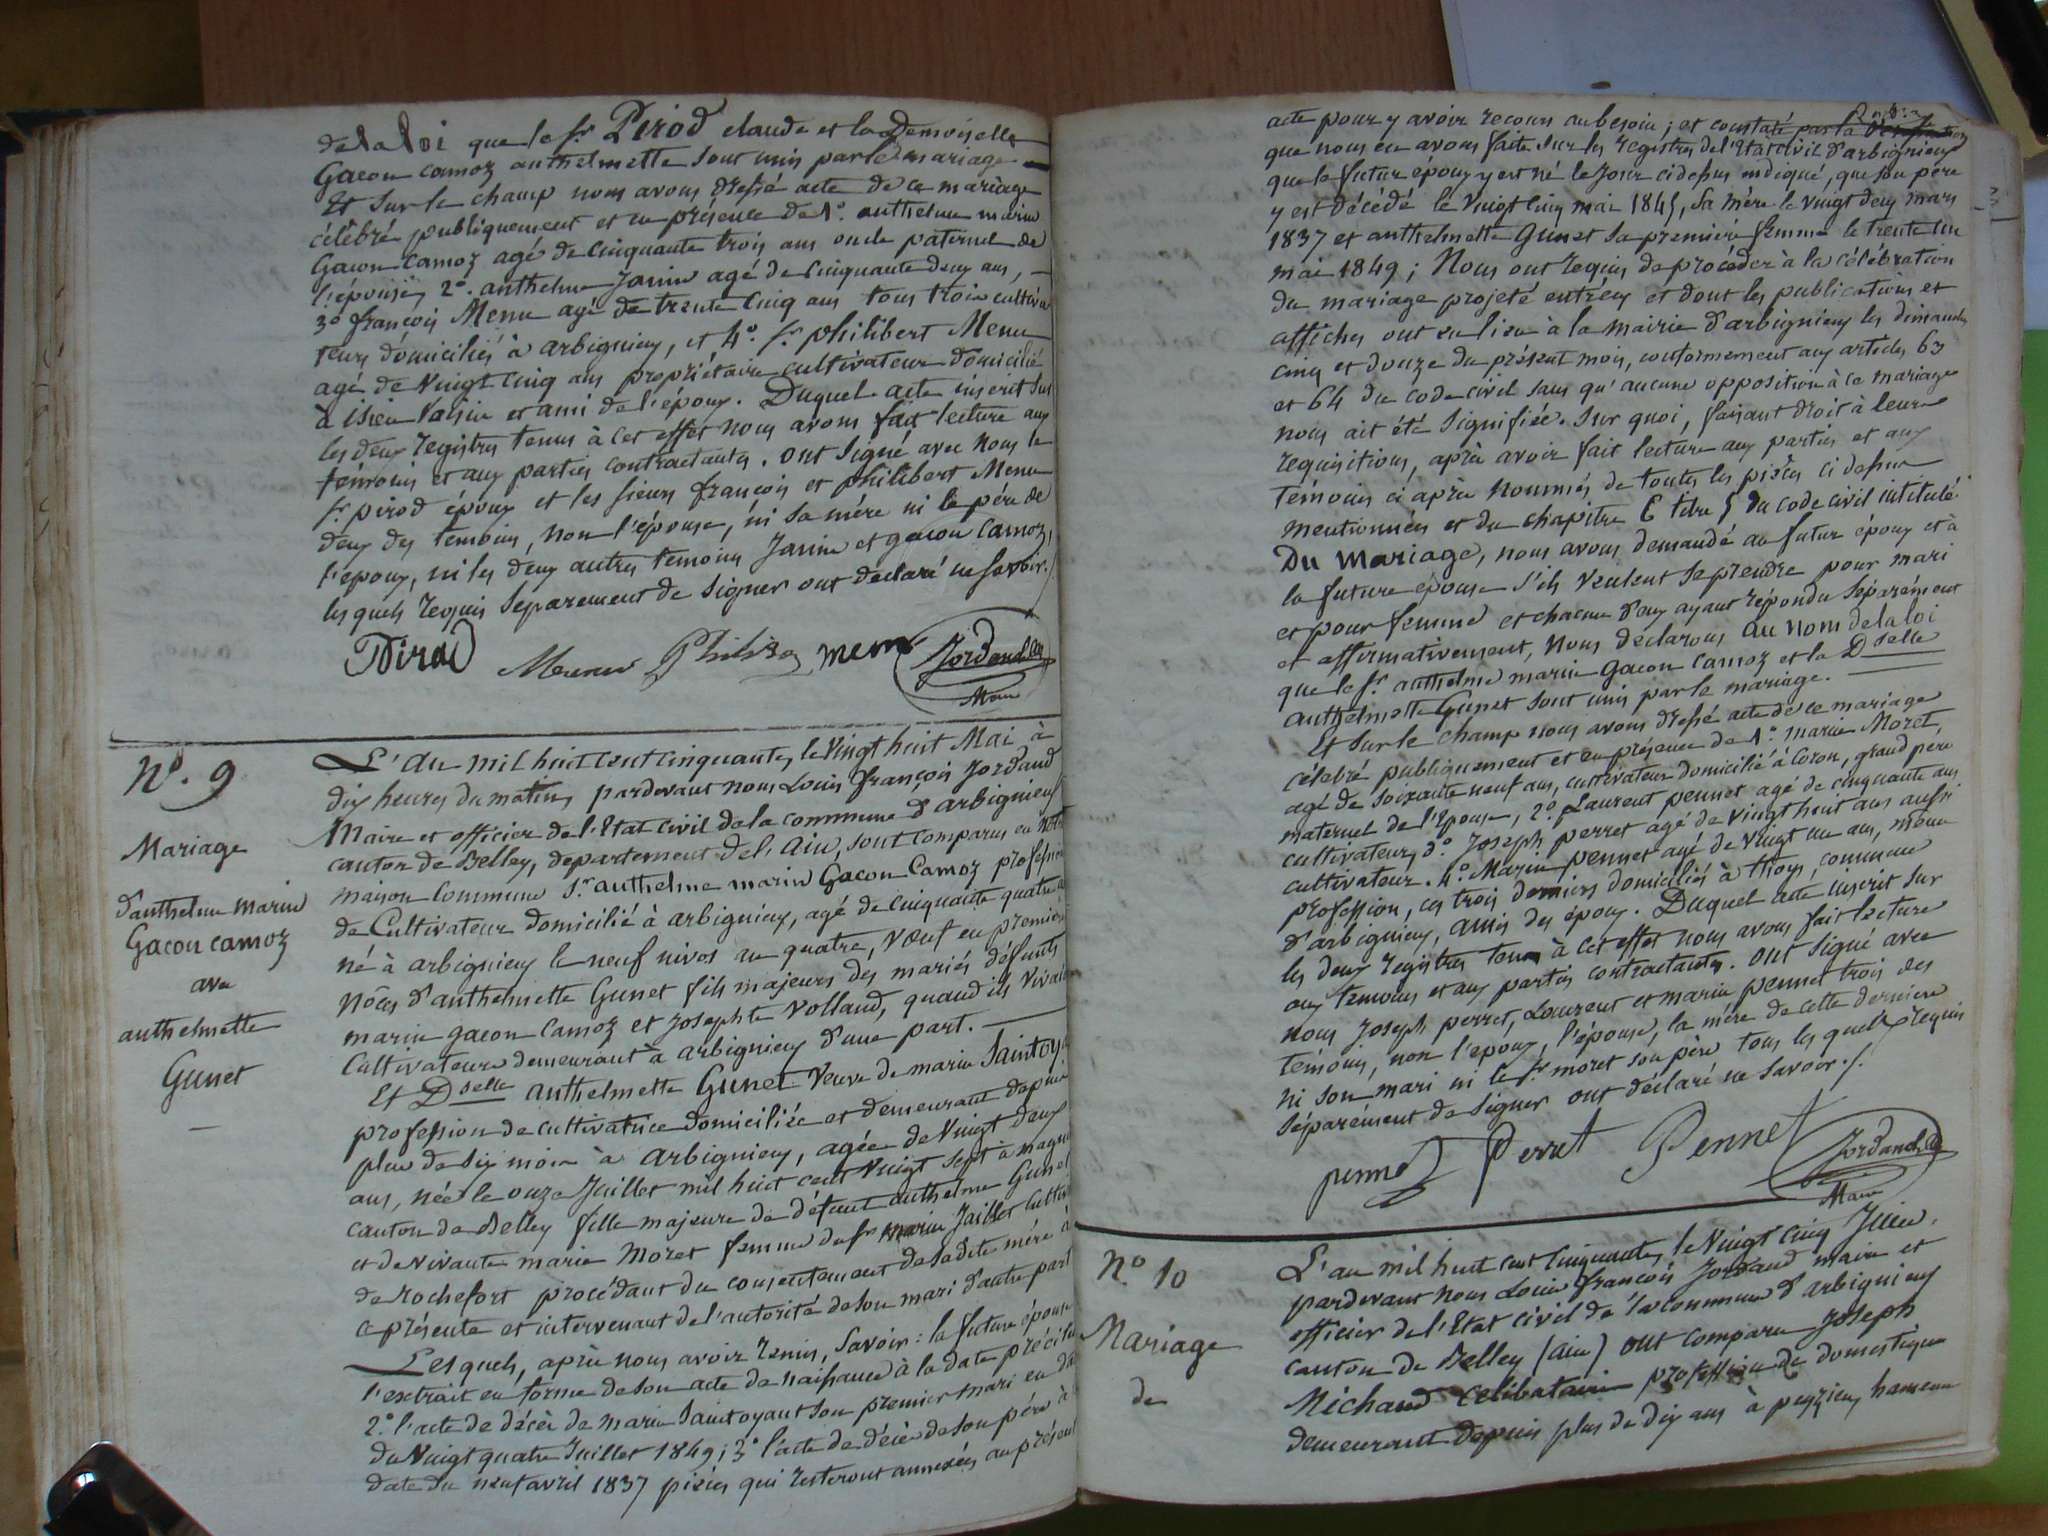 de la loi que le Sr. Pirod Claude et la Demoiselle
Gacon Camoz anthelmette sont unis par le mariage
Et sur le champ nous avons dressé acte de ce mariage
célébré publiquement et en présence de 1°. anthelme marin
Gacon Camoz agé de Cinquante trois ans oncle paternel de
l'épouse, 2°. anthelme Janin agé de Cinquante deux ans,
3° françois Menu agé de trente Cinq ans tous trois cultiva
teurs domiciliés à arbignieu, et 4°. Sr. philibert Menu
agé de Vingt Cinq ans propriétaire cultivateur domicilié
à voisin et ami de l'époux. Duquel acte inscrit sur
les deux registres tenus à cet effet nous avons fait lecture aux
témoins et aux parties contractantes. ont signé avec nous le
Sr. pirod époux et les sieurs françois et philibert Menu
deux des témoins, non l'épouse, ni sa mère ni le père de
l'époux, ni les deux autres témoins Janin et gacon Camoz,
lesquels requis séparement de signer ont déclaré ne savoir./.
Pirod Menu Philib menu Jordand
Maire
N°. 9
Mariage
d'anthelme marin
Gacon camoz
avec
anthelmette
Gunet
L'an mil huit cent cinquante, le vingt huit Mai à
dix heures du matin, pardevant nous Louis françois Jordand
Maire et officier de l'Etat civil de la commune d'arbignieu
canton de Belley, departement de l'Ain, sont comparus en notre
maison Commune Sr. anthelme marin Gacon Camoz profession
de Cultivateur domicilié à arbignieu, agé de cinquante quatre ans
né à arbignieu le neuf nivos an quatre, veuf en première
nôces d'anthelmette Gunet fils majeurs des mariés défunts
marin gacon camoz et Josephte Volland, quand ils vivaient
Cultivateurs demeurant à arbignieu d'une part.
Et Dselle anthelmette Gunet Veuve de marin Saintoyant
profession de cultivatrice domiciliée et demeurant depuis
plus de six mois à arbignieu, agée de vingt deux
ans, née le onze Juillet mil huit cent vingt sept à magnieu
canton de Belley fille majeure de défunt anthelme Gunet
et de vivante marie Moret femme du Sr marin Jaillet Cultiv
de rochefort procédant du consentement de sadite mère à
ce présente et intervenant de l'autorité de son mari d'autre part
Lesquels, après nous avoir remis, savoir: la future épouse
l'extrait en forme de son acte de naissance à la date précitée
2°. l'acte de décès de marin Saintoyant son premier mari en date
du vingt quatre Juillet 1849; 3° l'acte de décès de son père à
date du neuf avril 1837 pièces qui resteront annexées au présent
acte pour y avoir recours au besoin; et constaté par la vérification
que nous en avons faite sur les registres de l'Etat civil d'arbignieu
que le futur époux y est né le jour ci dessus indiqué, que son père
y est décédé le vingt cinq mai 1845, sa mère le vingt deux mars
1837 et anthelmette Gunet sa première femme le trente un
mai 1849; Nous ont requis de procéder à la célébration
du mariage projeté entr'eux et dont les publications et
affiches ont eu lieu à la mairie d'arbignieu les dimanches
cinq et douze du présent mois, conformement aux articles 63
et 64 du code civil sans qu'aucune opposition à ce mariage
nous ait été signifiée. Sur quoi, faisant droit à leurs
requisitions, après avoir fait lecture aux parties et aux
témoins ci après nommés de toutes les pièces ci dessus
mentionnées et du chapitre 6 titre 5 du code civil intitulé:
Du Mariage, nous avons demandé au futur époux et à
la future épouse s'ils veulent se prendre pour mari
et pour femme et chacun d'eux ayant répondu séparément
et affirmativement, nous déclarons au nom de la loi
que le Sr. anthelme marin gacon camoz et la Dselle
anthelmette Gunet sont unis par le mariage.
Et sur le champ nous avons dressé acte de ce mariage
célebré publiquement et en présence de 1°. marin Moret,
agé de soixante neuf ans, cultivateur domicilié à Coron, grand père
maternel de l'épouse, 2°. Laurent pennet agé de cinquante ans
cultivateur, 3°. Joseph perret agé de vingt huit ans aussi
cultivateur. 4°. Marin pennet agé de vingt un ans, même
profession, ces trois derniers domiciliés à thoys, commune
d'arbignieu, amis des époux. Duquel acte inscrit sur
les deux registres tenus à cet effet nous avons fait lecture
aux témoins et aux parties contractantes. ont signé avec
nous Joseph perret, Laurent et marin pennet trois des
témoins, non l'époux, l'épouse, la mère de cette dernière
ni son mari ni le Sr. moret son père tous lesquels requis
séparément de signer ont déclaré ne savoir./.
pennet Perret Pennet Jordand
Maire
N° 10
Mariage
de
L'an mil huit cent cinquante, le vingt cinq Juin,
pardevant nous Louis françois Jordand maire et
officier de l'Etat civil de la commune d'arbignieu
canton de Belley (ain) ont comparu Joseph
Michaud célibataire profession de domestique
demeurant depuis plus de dix ans à peyzieu, hameau